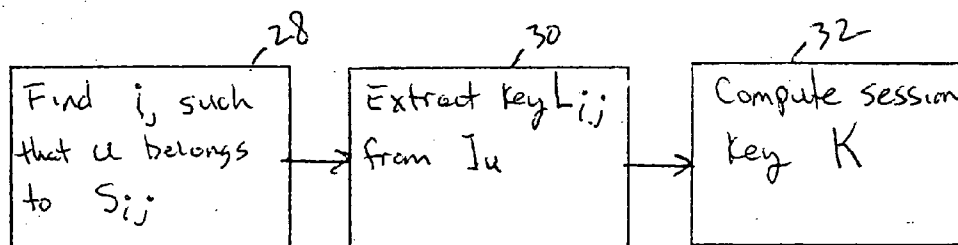 28
Find ij such
that u belongs
to Sij
30
Extract key Lij
from Iu
32
Compute session
key K